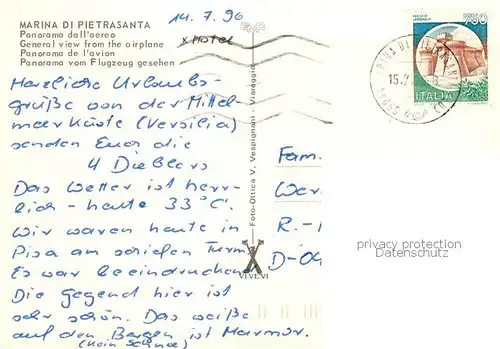 MARINA DI PIETRASANTA
Panorama dall'aereo
General view from the airplane
Panorama de l'avion
Panorama vom Flugzeug gesehen
14.7.96
x Hotel
Herzliche Urlaubs-
grüße von der Mittel-
meerküste (Versilia)
senden Euch die
4 Dieblers
Das Wetter ist herr-
lich - heute 33°C.
Wir waren heute in
Pisa am schiefen Turm
Es war beeindrucken
Die Gegend hier ist
sehr schön. Das weiße
auf den Bergen ist Marmor.
(kein Schnee)
Foto-Ottica V. Vespignani - Viareggio
VI.VI.VI
750
ITALIA
15.7
Fam.
Wer
R.-
D-04
privacy protection
Datenschutz